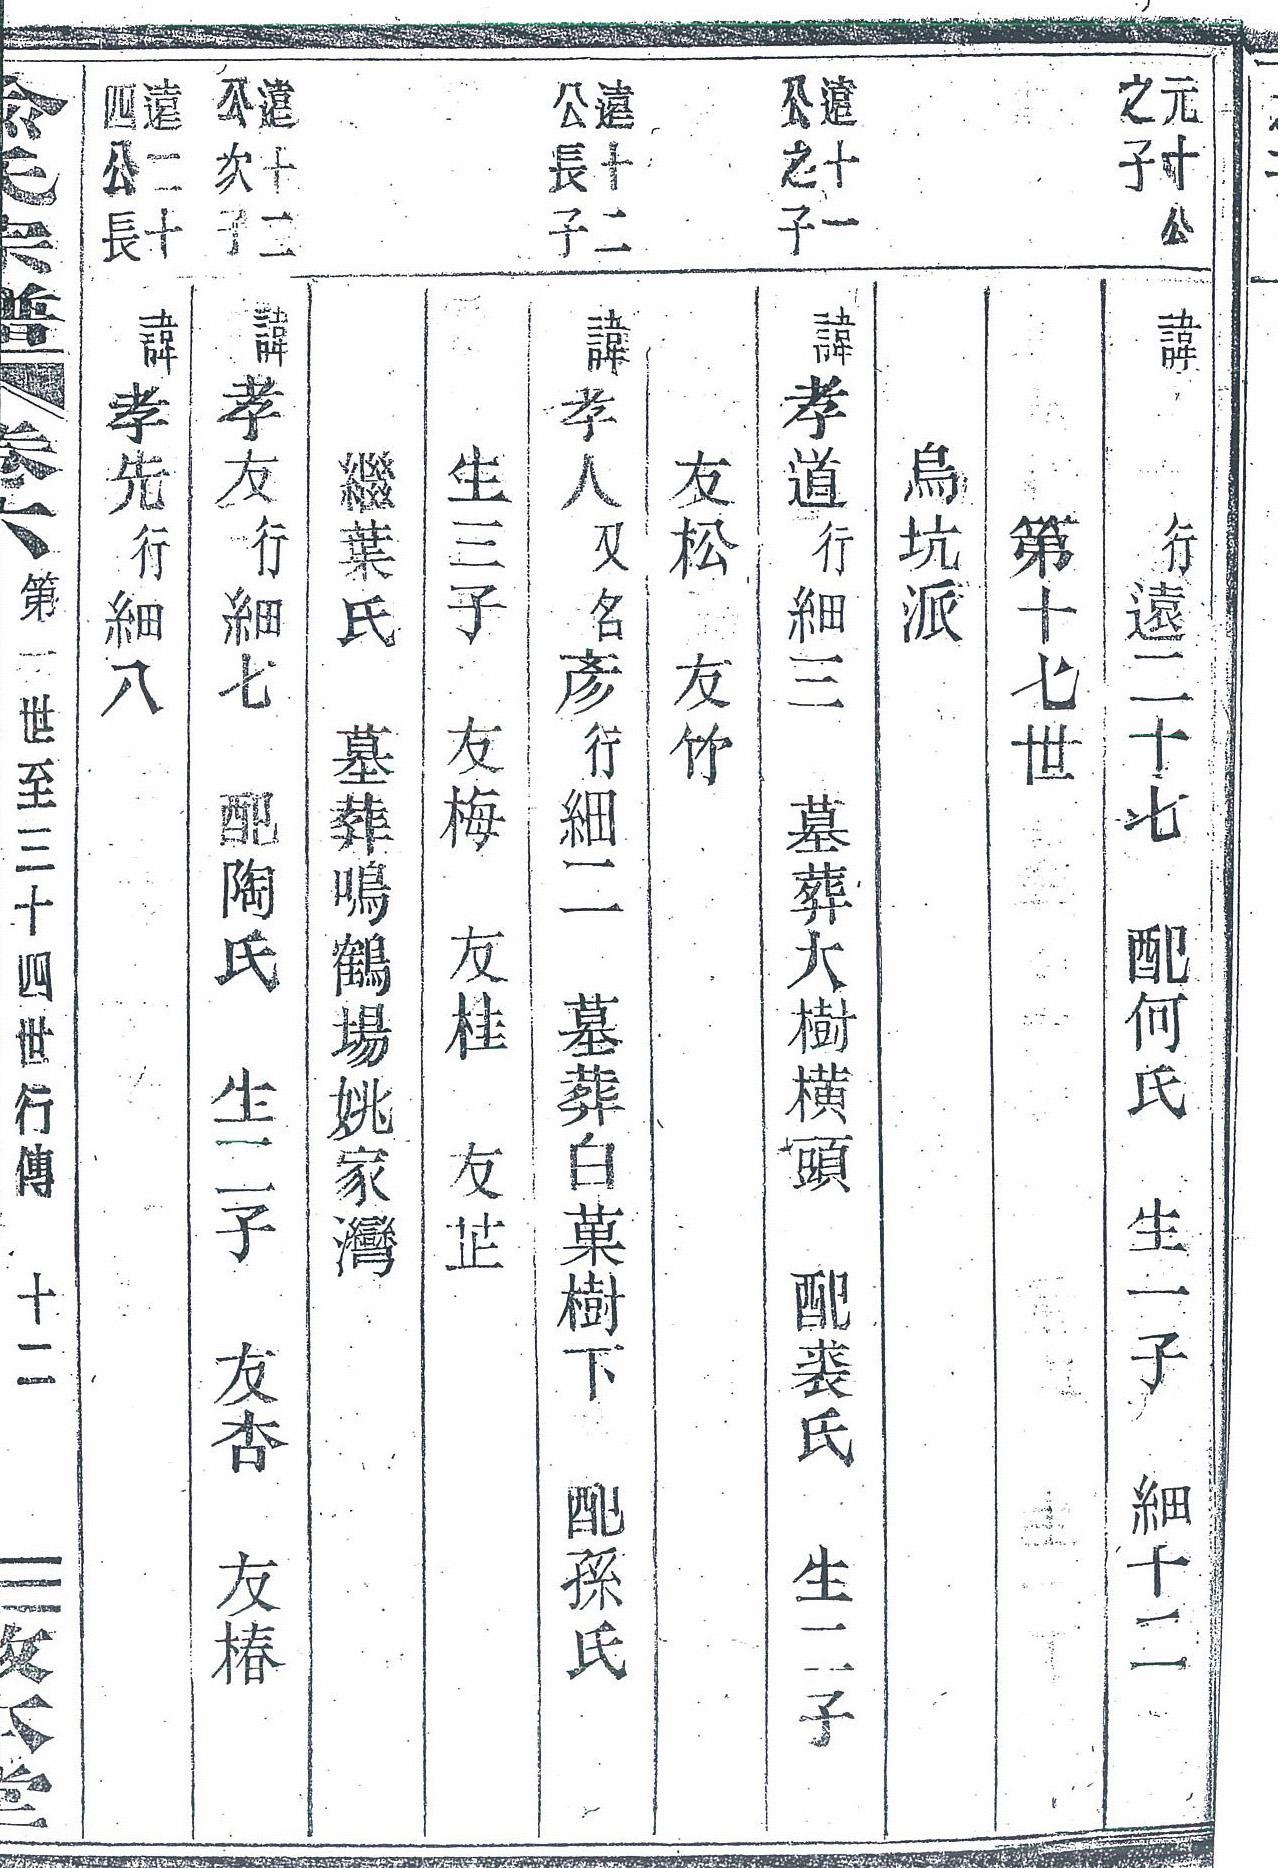 元十公
之子
諱 行遠二十七 配何氏 生一子 細十二
第十七世
烏坑派
遠十一
公之子
諱孝道行細三 墓葬大樹橫頭 配裘氏 生二子
友松 友竹
遠十二
公長子
諱孝人又名彥行細二 墓葬白菓樹下 配孫氏
生三子 友梅 友桂 友芷
繼葉氏 墓葬鳴鶴場姚家灣
遠十二
公次子
諱孝友行細七 配陶氏 生二子 友杏 友椿
遠二十
四公長
諱孝先行細八
氏宗譜 卷六 第一世至三十四世行傳 十二